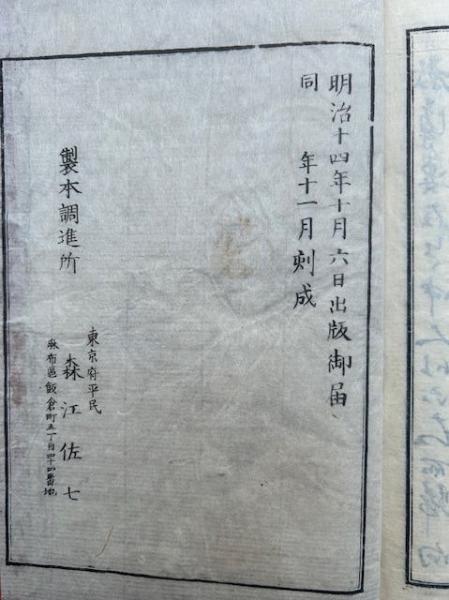 明治十四年十月六日出版御届
同　年十一月刻成
製本調進所
東京府平民
森江佐七
麻布區飯倉町五丁目四十四番地